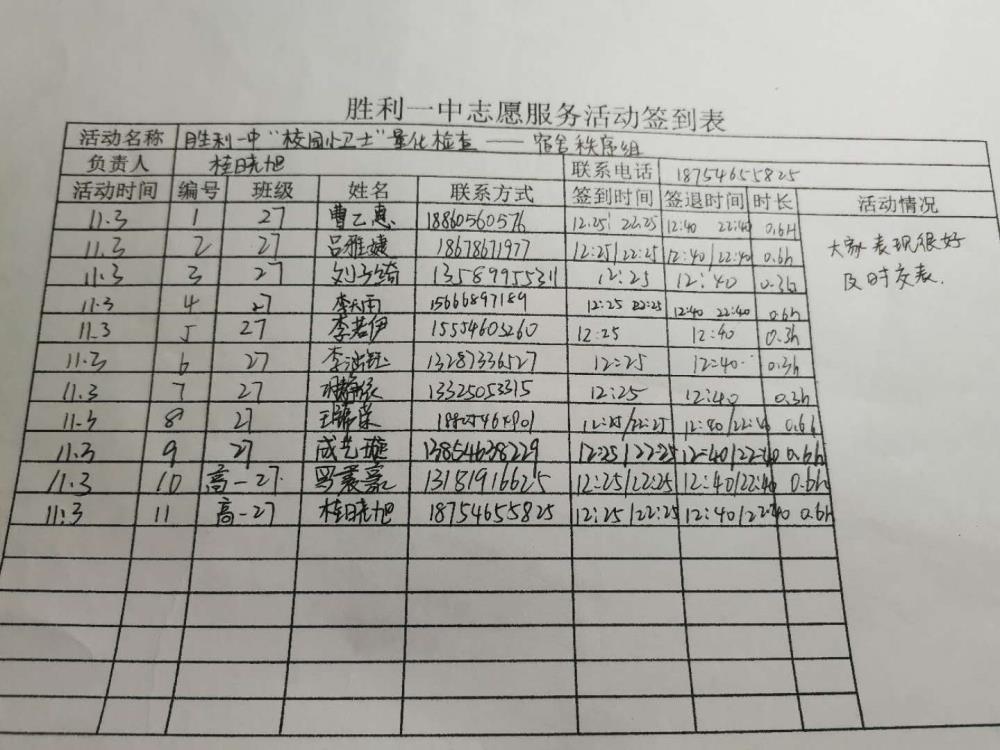 胜利一中志愿服务活动签到表
活动名称 胜利一中"校园小卫士"量化检查——宿舍秩序组
负责人 桂晓旭 联系电话 18754655825
活动时间 编号 班级 姓名 联系方式 签到时间 签退时间 时长 活动情况
11.3 1 27 曹乙惠 18860560576 12:25 22:25 12:40 22:40 0.6H
大家表现很好
11.3 2 27 吕雅婕 18678671977 12:25/22:25 12:40/22:40 0.6h
及时交表.
11.3 3 27 刘子绮 13589955311 12:25 12:40 0.3h
11.3 4 27 李天雨 15666897189 12:25 22:25 12:40 22:40 0.6h
11.3 5 27 李若伊 15554605260 12:25 12:40 0.3h
11.3 6 27 13287336527 12:25 12:40 0.3h
11.3 7 27 13325053315 12:25 12:40 0.3h
11.3 8 27 12:25/22:25 12:40/22:40 0.6h
11.3 9 27 成艺璇 13854638229 12:25/22:25 12:40/22:40 0.6h
11.3 10 高一27 13181916625 12:25/22:25 12:40/22:40 0.6h
11.3 11 高-27 桂晓旭 18754655825 12:25/22:25 12:40/22:40 0.6h